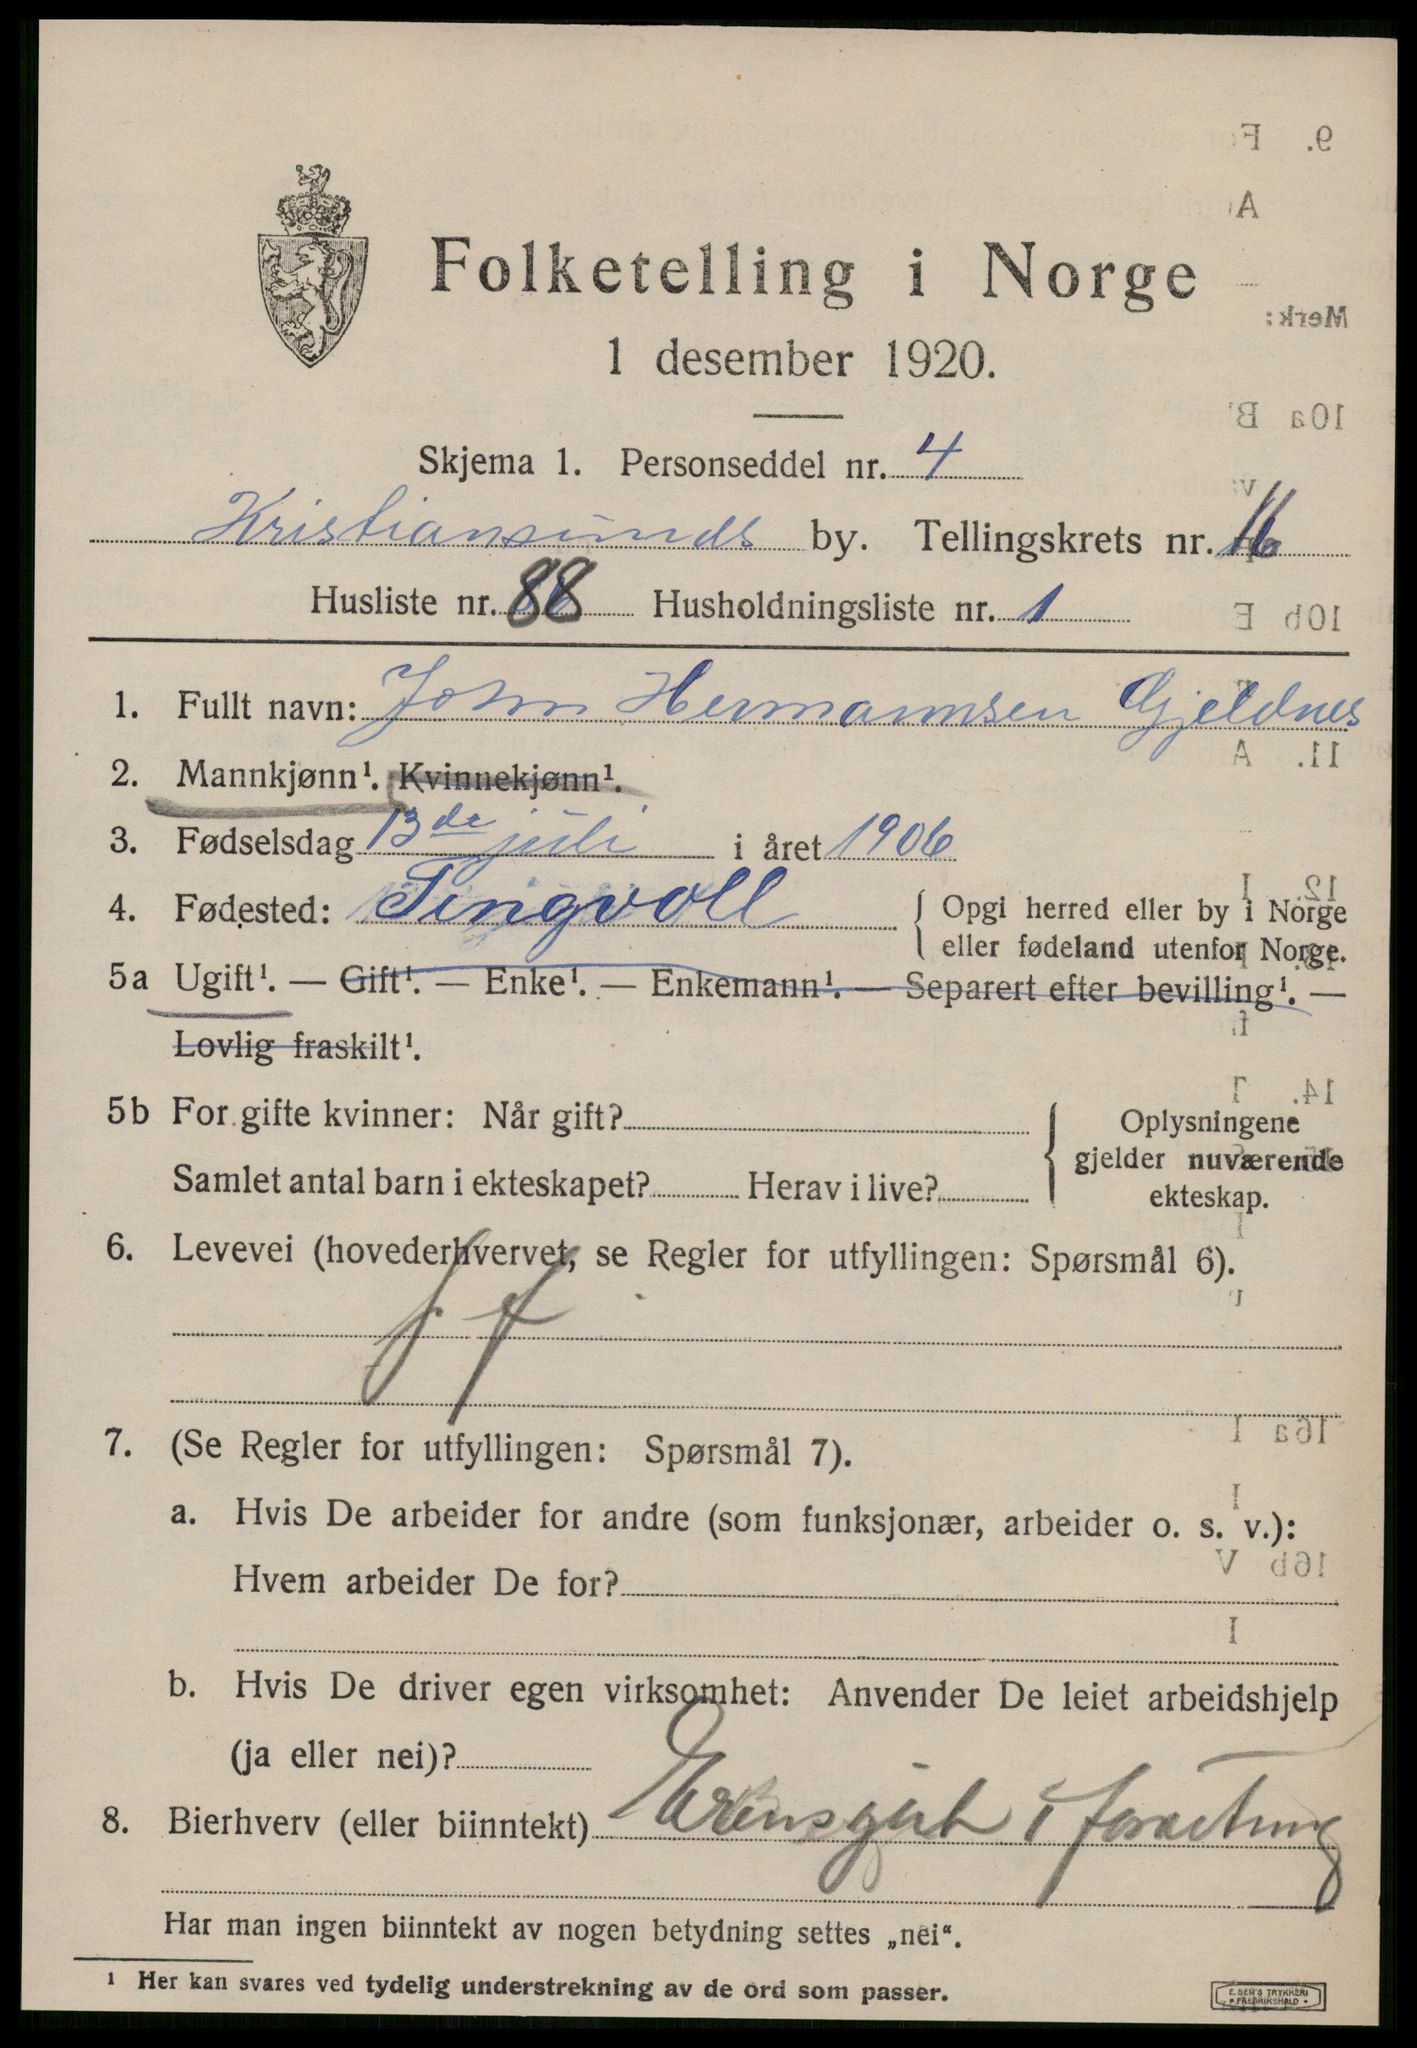 Folketelling i Norge
1 desember 1920.
Skjema 1. Personseddel nr. 4
Kristiansunds by. Tellingskrets nr. 16
Husliste nr. 88 Husholdningsliste nr. 1
1. Fullt navn: John Hermannsen Gjeldnes
2. Mannkjønn¹. Kvinnekjønn¹.
3. Fødselsdag 13de juli i året 1906
4. Fødested: Tingvoll { Opgi herred eller by i Norge
eller fødeland utenfor Norge.
5a Ugift¹. — Gift¹. — Enke¹. — Enkemann¹. — Separert efter bevilling¹. —
Lovlig fraskilt¹.
5b For gifte kvinner: Når gift? { Oplysningene
gjelder nuværende
Samlet antal barn i ekteskapet? Herav i live?
ekteskap.
6. Levevei (hovederhvervet, se Regler for utfyllingen: Spørsmål 6).
7. (Se Regler for utfyllingen: Spørsmål 7).
a. Hvis De arbeider for andre (som funksjonær, arbeider o. s. v.):
Hvem arbeider De for?
b. Hvis De driver egen virksomhet: Anvender De leiet arbeidshjelp
(ja eller nei)?
8. Bierhverv (eller biinntekt) i
Har man ingen biinntekt av nogen betydning settes „nei“.
¹ Her kan svares ved tydelig understrekning av de ord som passer.
E. SEM'S TRYKKERI
• FREDRIKSHALD •
9.
A
Merk:
10a B
10b E
11. A
12. I
14. T
16a I
I
16b V
I